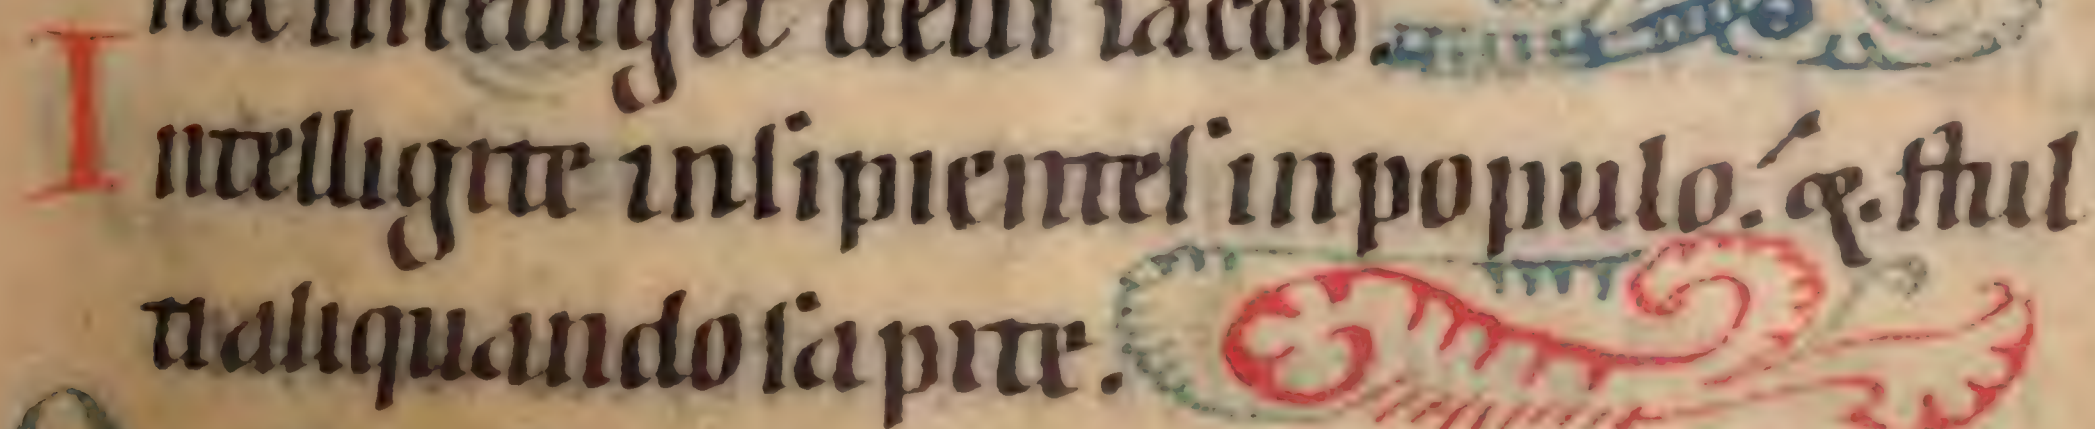 nec intelliget deus iacob.
Intelligite insipientes in populo. & stul
ti aliquando sapite.